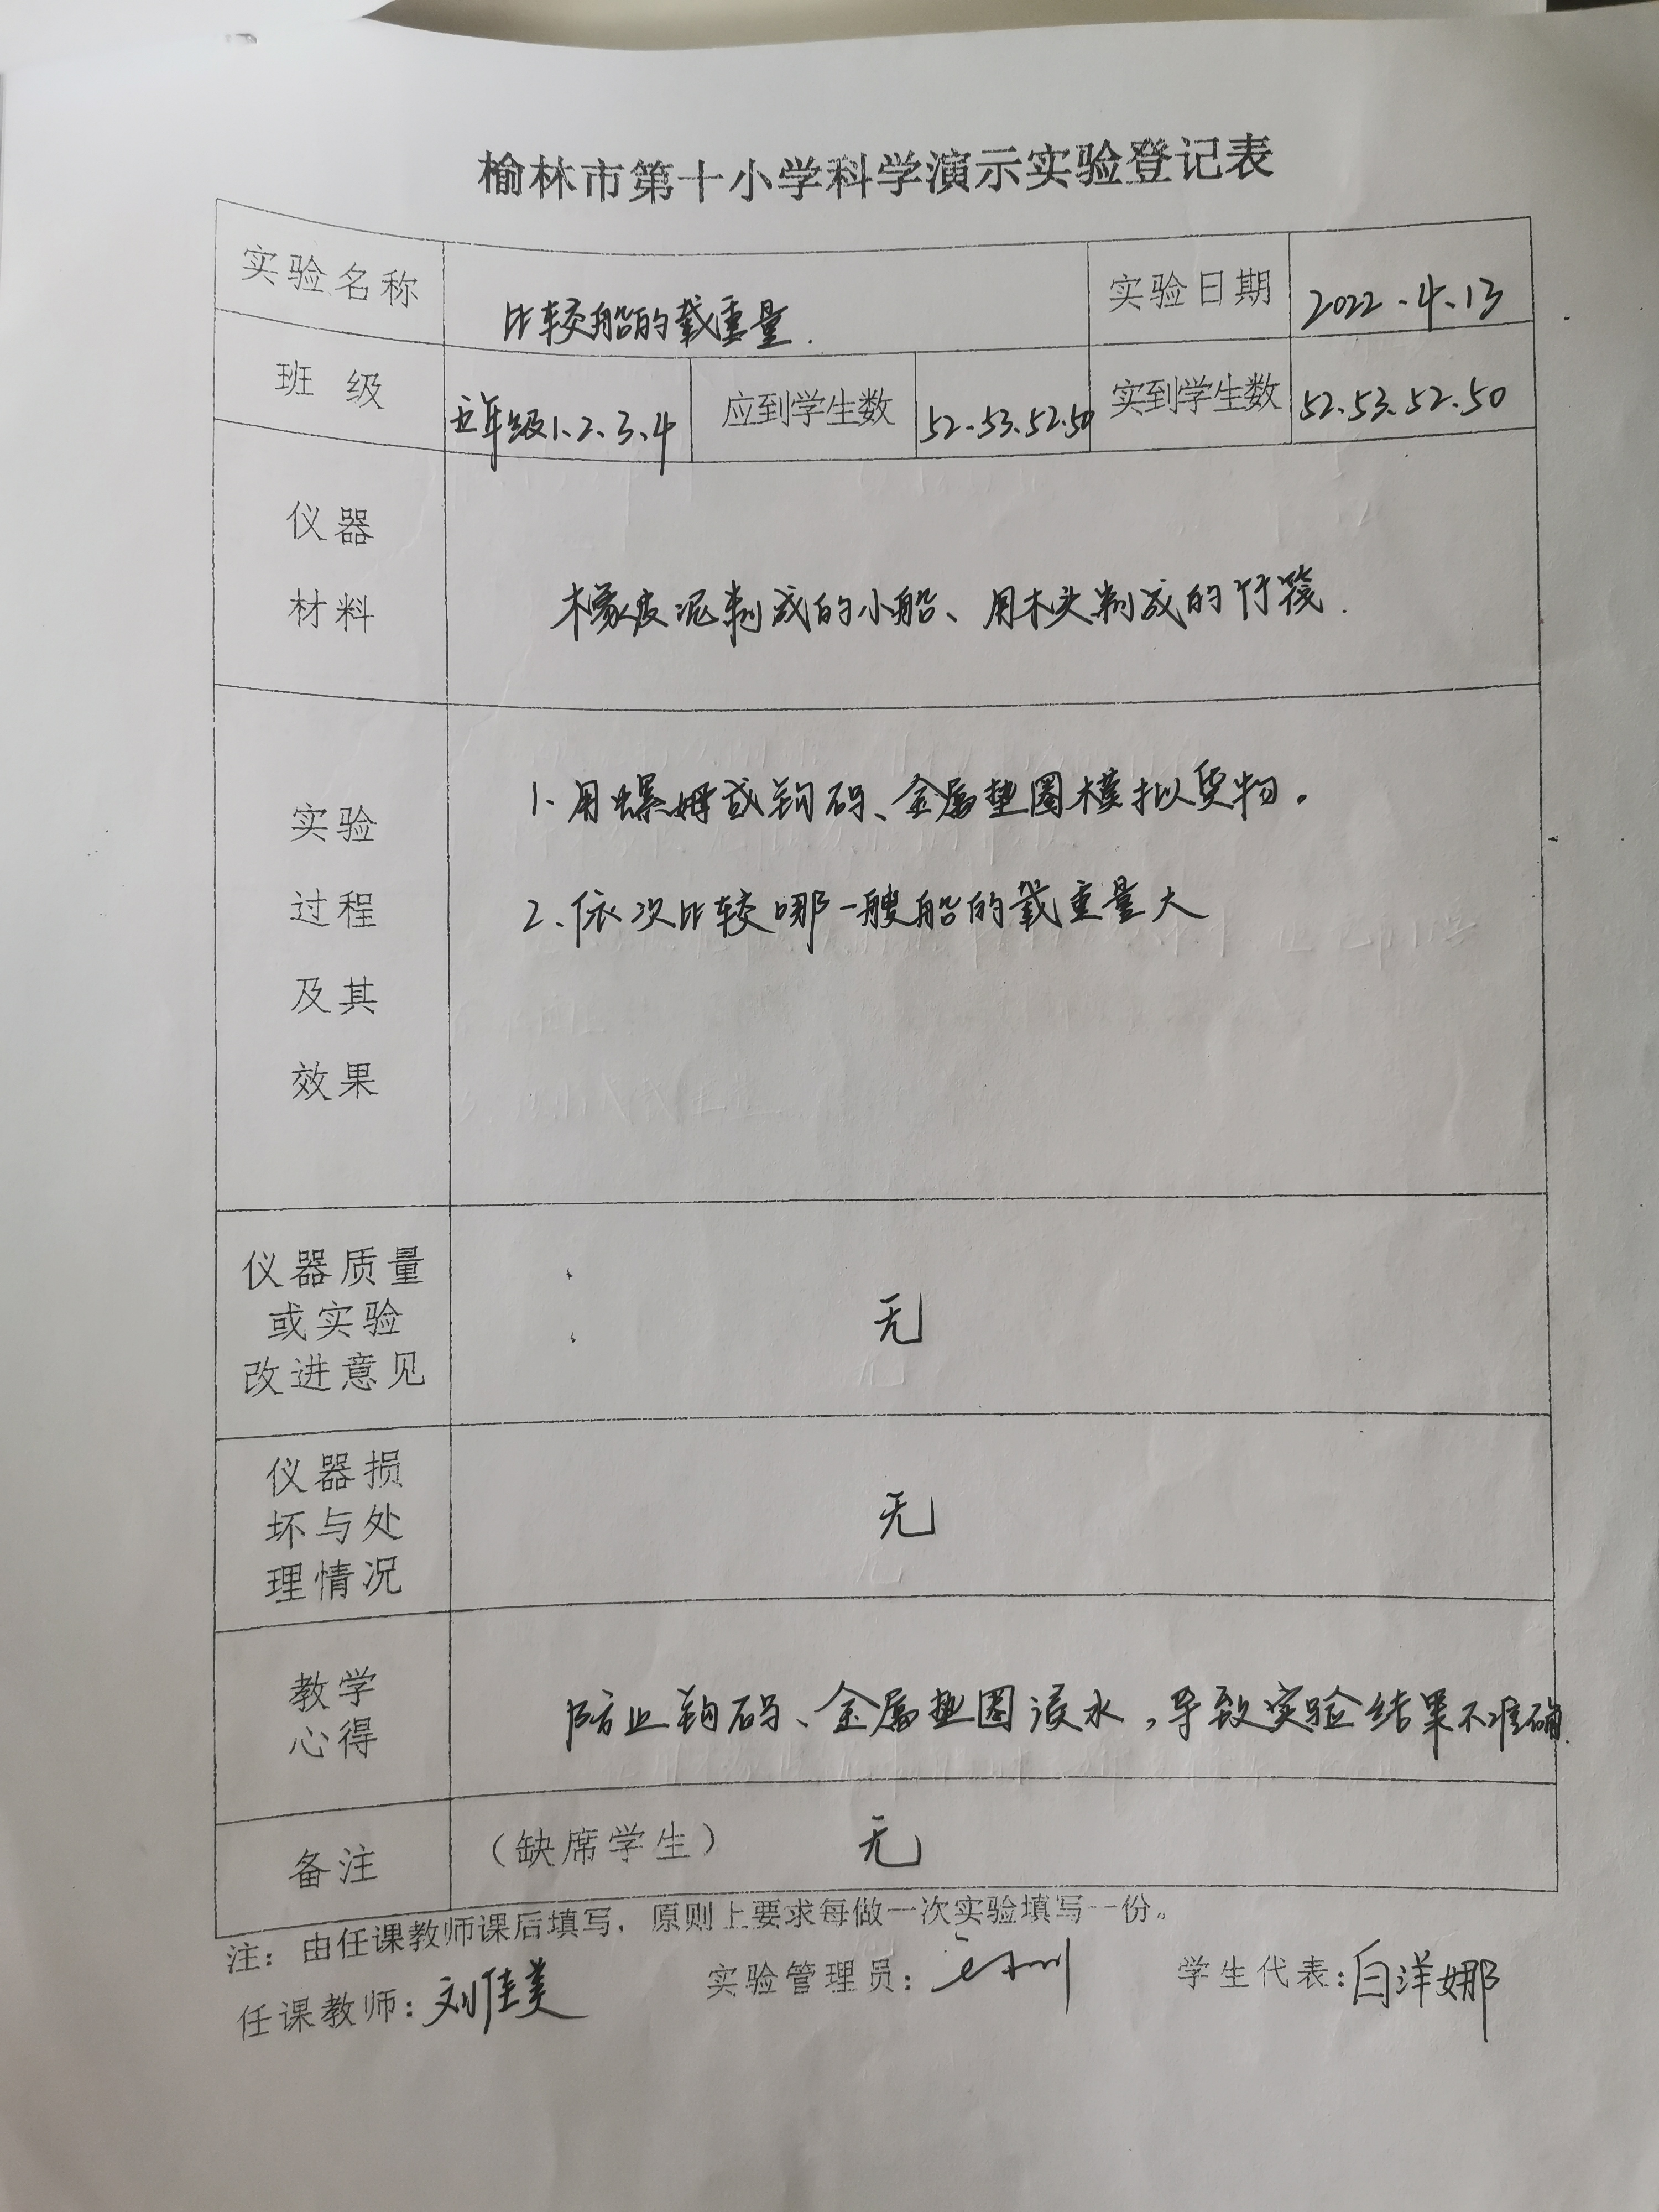 榆林市第十小学科学演示实验登记表
实验名称 比较船的载重量. 实验日期 2022.4.13
班级 五年级1、2、3、4 应到学生数 52.53.52.50 实到学生数 52.53.52.50
仪器
材料
橡皮泥制成的小船、用木头制成的竹筏.
实验
过程
及其
效果
1、用螺母或钩码、金属垫圈模拟货物。
2、依次比较哪一艘船的载重量大
仪器质量
或实验
改进意见
无
仪器损
坏与处
理情况
无
教学
心得
防止钩码、金属垫圈浸水，导致实验结果不准确.
备注 （缺席学生） 无
注：由任课教师课后填写，原则上要求每做一次实验填写一份。
任课教师：刘佳美 实验管理员： 学生代表：白洋娜